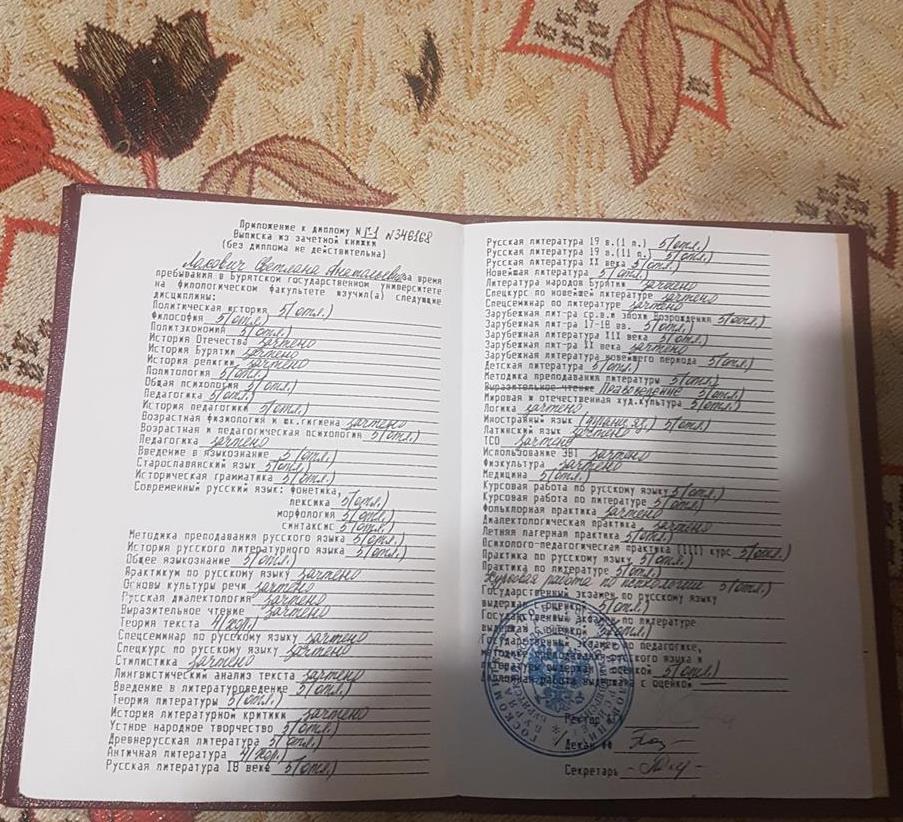 Приложение к диплому №Г-1 №346168
Выписка из зачетной книжки
(без диплома не действительна)
Светлана Анатольевна за время
пребывания в Бурятском государственном университете
на филологическом факультете изучил(а) следующие
дисциплины:
Политическая история 5(отл.)
Философия 5(отл.)
Политэкономия 5(отл.)
История Отечества зачтено
История Бурятии зачтено
История религии зачтено
Политология 5(отл.)
Общая психология 5(отл.)
Педагогика 5(отл.)
История педагогики 5(отл.)
Возрастная физиология и шк.гигиена зачтено
Возрастная и педагогическая психология 5(отл.)
Педагогика зачтено
Введение в языкознание 5(отл.)
Старославянский язык 5(отл.)
Историческая грамматика 5(отл.)
Современный русский язык: фонетика,
лексика 5(отл.)
морфология 5(отл.)
синтаксис 5(отл.)
Методика преподавания русского языка 5(отл.)
История русского литературного языка 5(отл.)
Общее языкознание 5(отл.)
Практикум по русскому языку зачтено
Основы культуры речи зачтено
Русская диалектология зачтено
Выразительное чтение зачтено
Теория текста 4(хор.)
Спецсеминар по русскому языку зачтено
Спецкурс по русскому языку зачтено
Стилистика зачтено
Лингвистический анализ текста зачтено
Введение в литературоведение 5(отл.)
Теория литературы 5(отл.)
История литературной критики зачтено
Устное народное творчество 5(отл.)
Древнерусская литература 5(отл.)
Античная литература 4(хор.)
Русская литература 18 века 5(отл.)
Русская литература 19 в.(1 п.) 5(отл.)
Русская литература 19 в.(11 п.) 5(отл.)
Русская литература XX века 5(отл.)
Новейшая литература 5(отл.)
Литература народов Бурятии зачтено
Спецкурс по новейшей литературе зачтено
Спецсеминар по литературе зачтено
Зарубежная лит-ра ср.в.и эпохи Возрождения 5(отл.)
Зарубежная лит-ра 17-18 вв. 5(отл.)
Зарубежная литература XIX века 5(отл.)
Зарубежная лит-ра XX века зачтено
Зарубежная литература новейшего периода 5(отл.)
Детская литература 5(отл.)
Методика преподавания литературы 5(отл.)
Выразительное чтение Правоведение 5(отл.)
Мировая и отечественная худ.культура 5(отл.)
Логика зачтено
Иностранный язык 5(отл.)
Латинский язык зачтено
ТСО зачтено
Использование ЭВТ зачтено
Физкультура зачтено
Медицина 5(отл.)
Курсовая работа по русскому языку 5(отл.)
Курсовая работа по литературе 5(отл.)
Фольклорная практика зачтено
Диалектологическая практика зачтено
Летняя лагерная практика 5(отл.)
Психолого-педагогическая практика (III) курс 5(отл.)
Практика по русскому языку 5(отл.)
Практика по литературе 5(отл.)
Курсовая работа по психологии 5(отл.)
Государственный экзамен по русскому языку
выдержал с оценкой 5(отл.)
Государственный экзамен по литературе
выдержал с оценкой 5(отл.)
Государственный экзамен по педагогике,
методике преподавания русского языка и
литературы выдержал с оценкой 5(отл.)
Дипломная работа выдержана с оценкой
Ректор БГУ
Декан ФФ
Секретарь